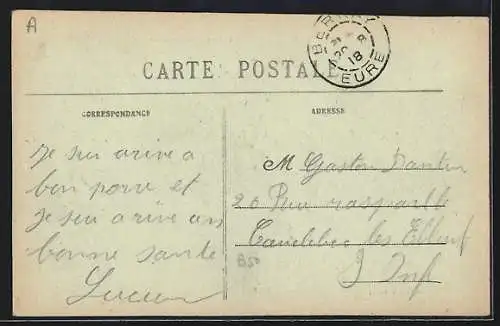 A
BERNAY
EURE
18
CARTE POSTALE
CORRESPONDANCE
ADRESSE
Je sui arive a
bon porre et
Je sui arive an
bonne sante
Lucien
M Gaston Dantin
26 Rue raspaill
Caudebec les Elbeuf
S Inf
B50